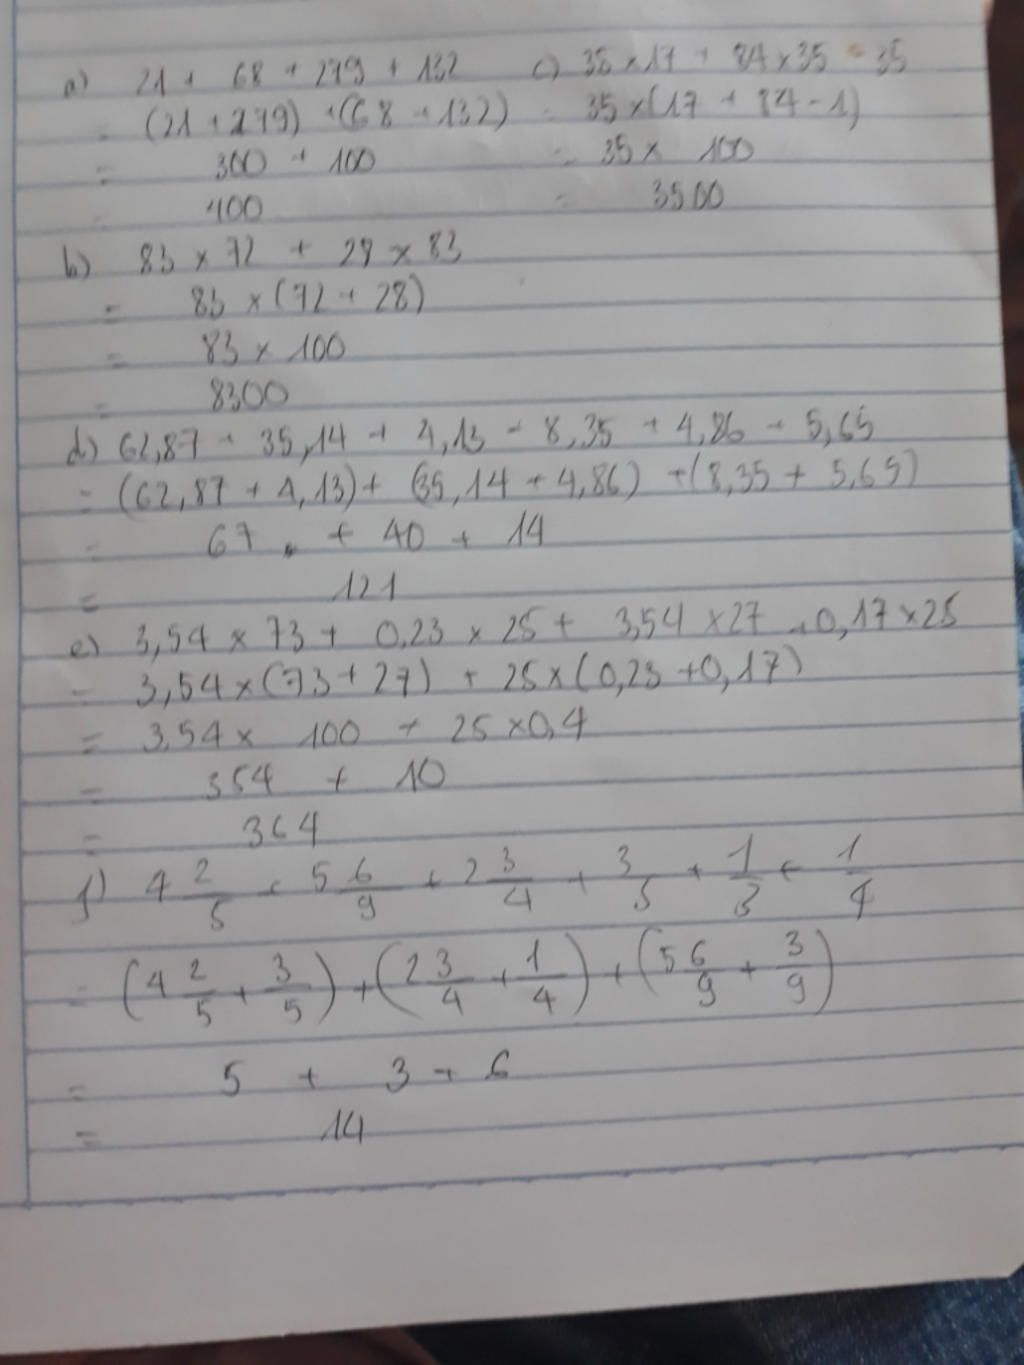 a) 21 + 68 + 279 + 132
= (21 + 279) + (68 + 132)
= 300 + 100
= 400
c) 35 × 17 + 84 × 35 - 35
= 35 × (17 + 84 - 1)
= 35 × 100
= 3500
b) 83 × 72 + 28 × 83
= 83 × (72 + 28)
= 83 × 100
= 8300
d) 62,87 + 35,14 + 4,13 + 8,35 + 4,86 + 5,65
= (62,87 + 4,13) + (35,14 + 4,86) + (8,35 + 5,65)
= 67 + 40 + 14
= 121
e) 3,54 × 73 + 0,23 × 25 + 3,54 × 27 + 0,17 × 25
= 3,54 × (73 + 27) + 25 × (0,23 + 0,17)
= 3,54 × 100 + 25 × 0,4
= 354 + 10
= 364
f) 4 2/5 + 5 6/9 + 2 3/4 + 3/5 + 1/3 + 1/4
= (4 2/5 + 3/5) + (2 3/4 + 1/4) + (5 6/9 + 3/9)
= 5 + 3 + 6
= 14